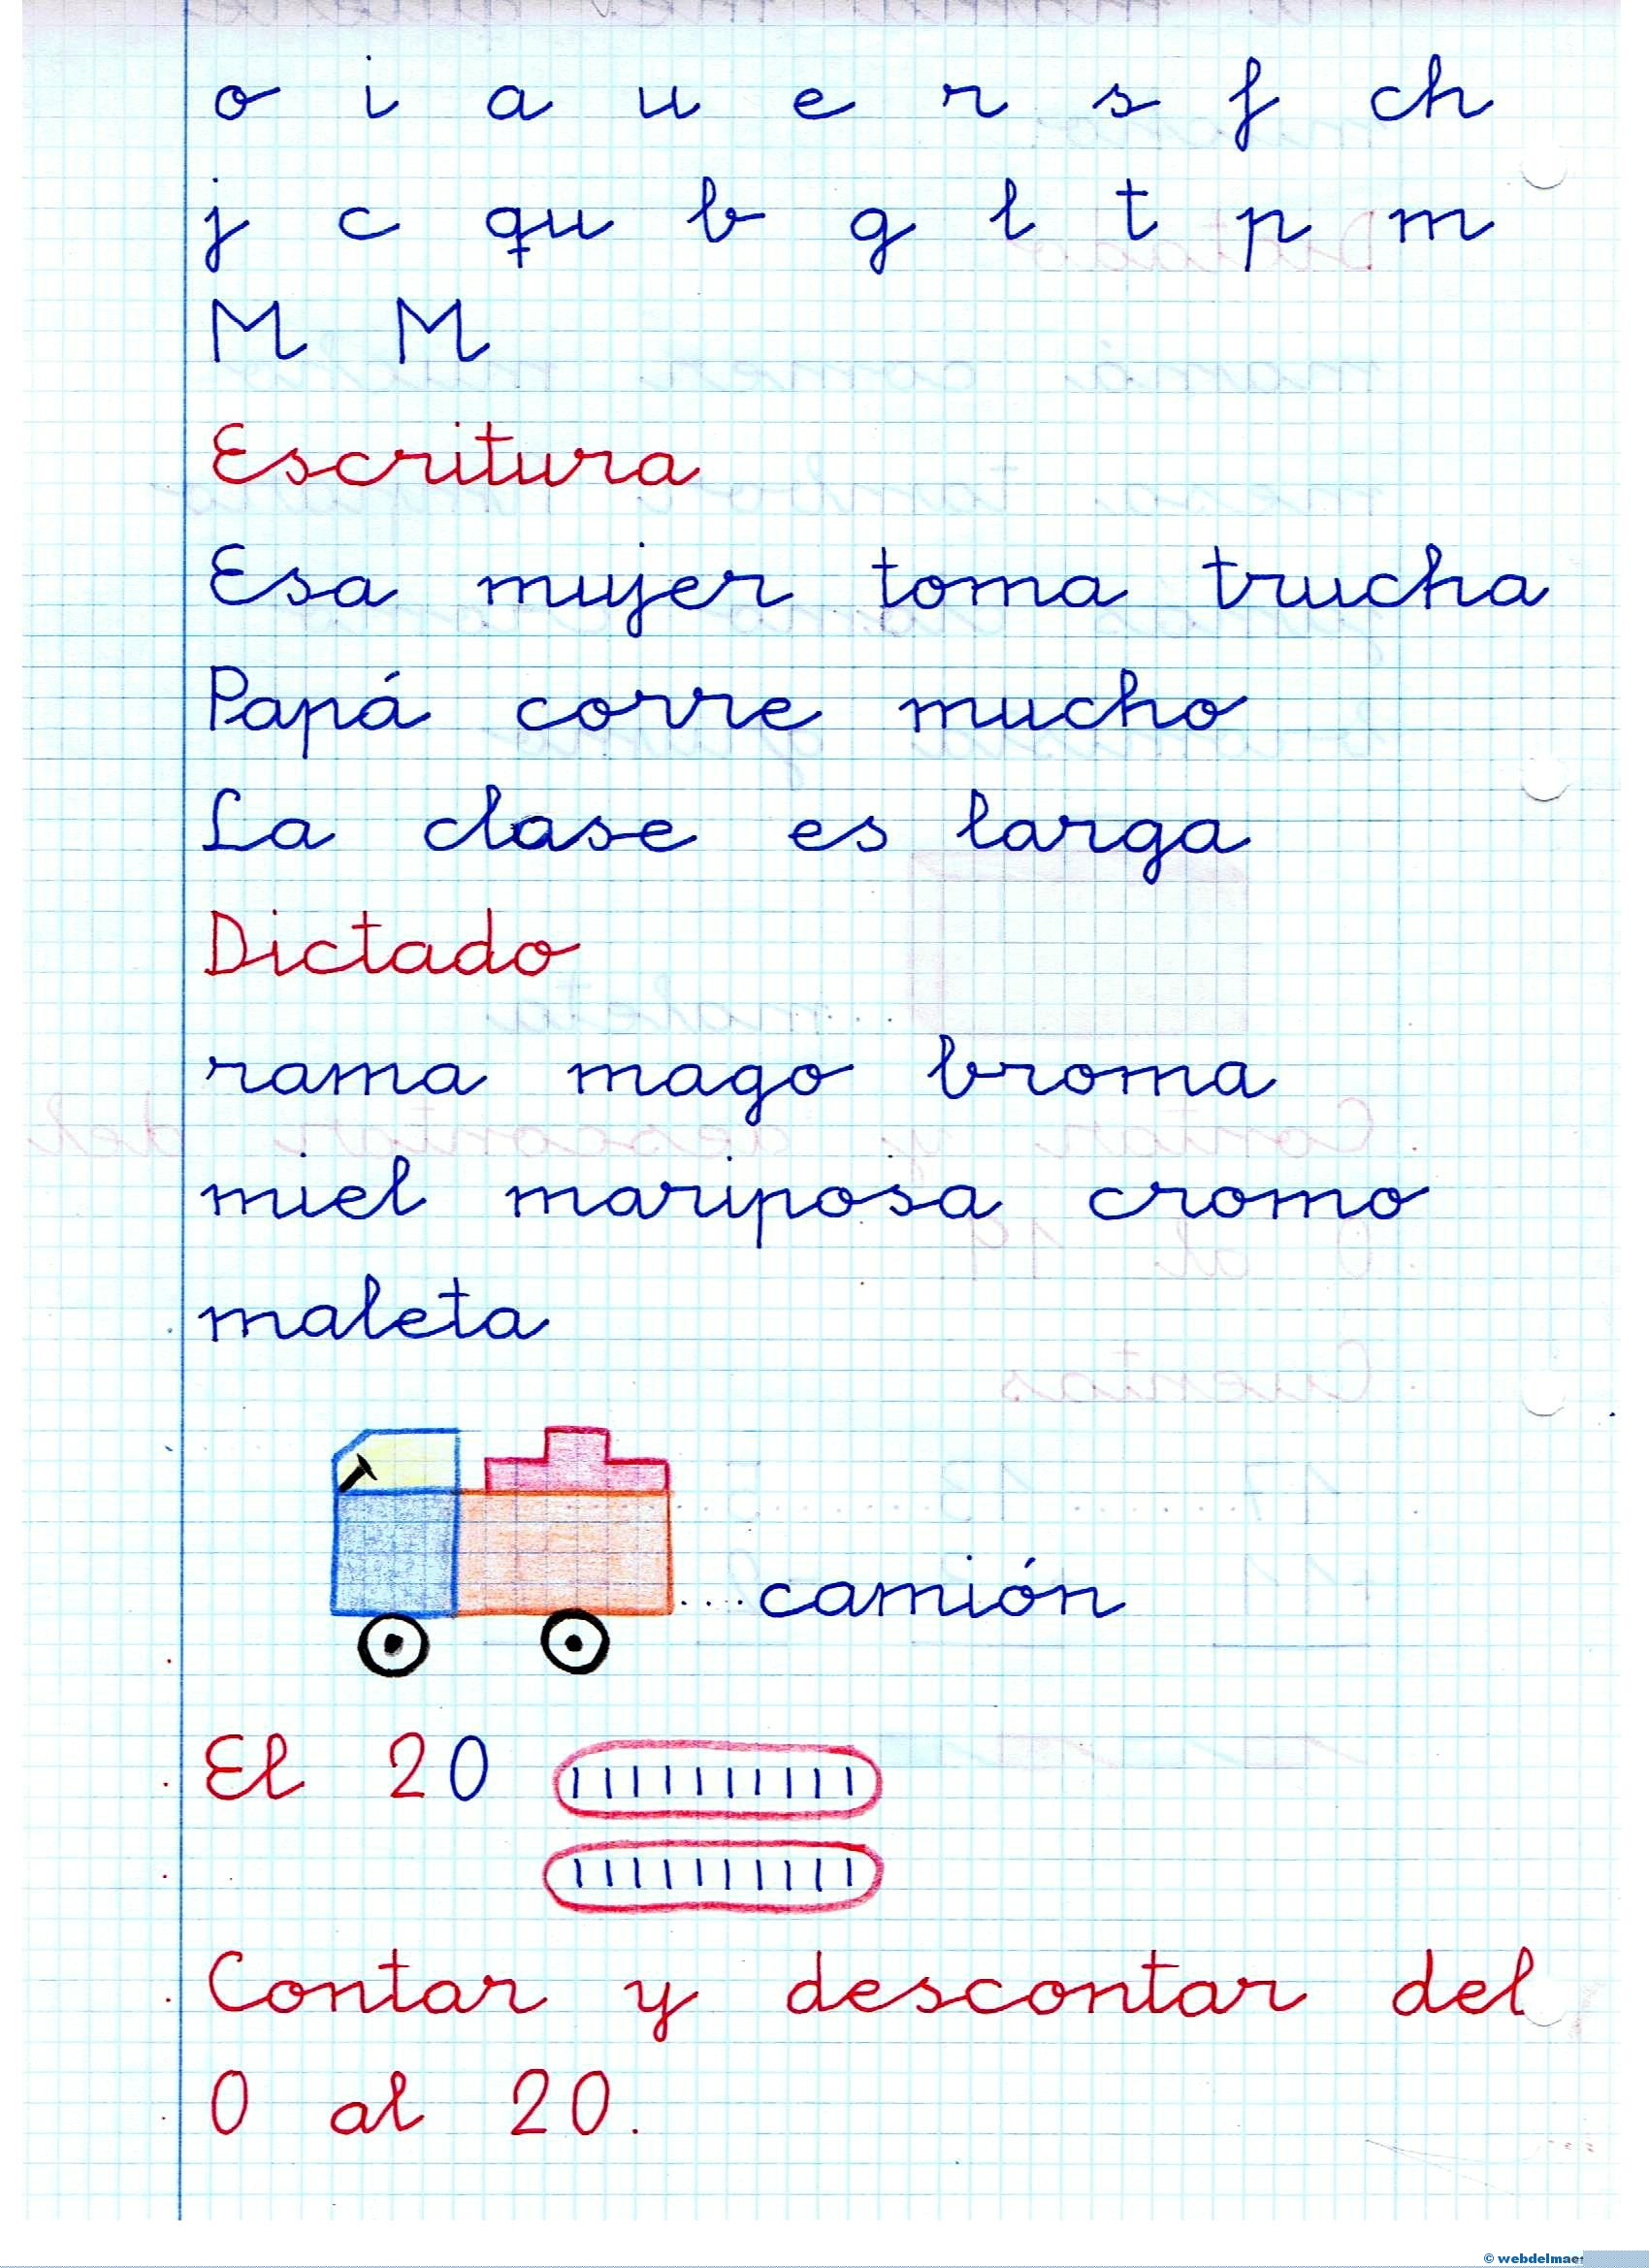 o i a u e r s f ch
j c qu b g l t p m
M M
Escritura
Esa mujer toma trucha
Papá corre mucho
La clase es larga
Dictado
rama mago broma
miel mariposa cromo
maleta
...camión
El 20
Contar y descontar del
0 al 20.